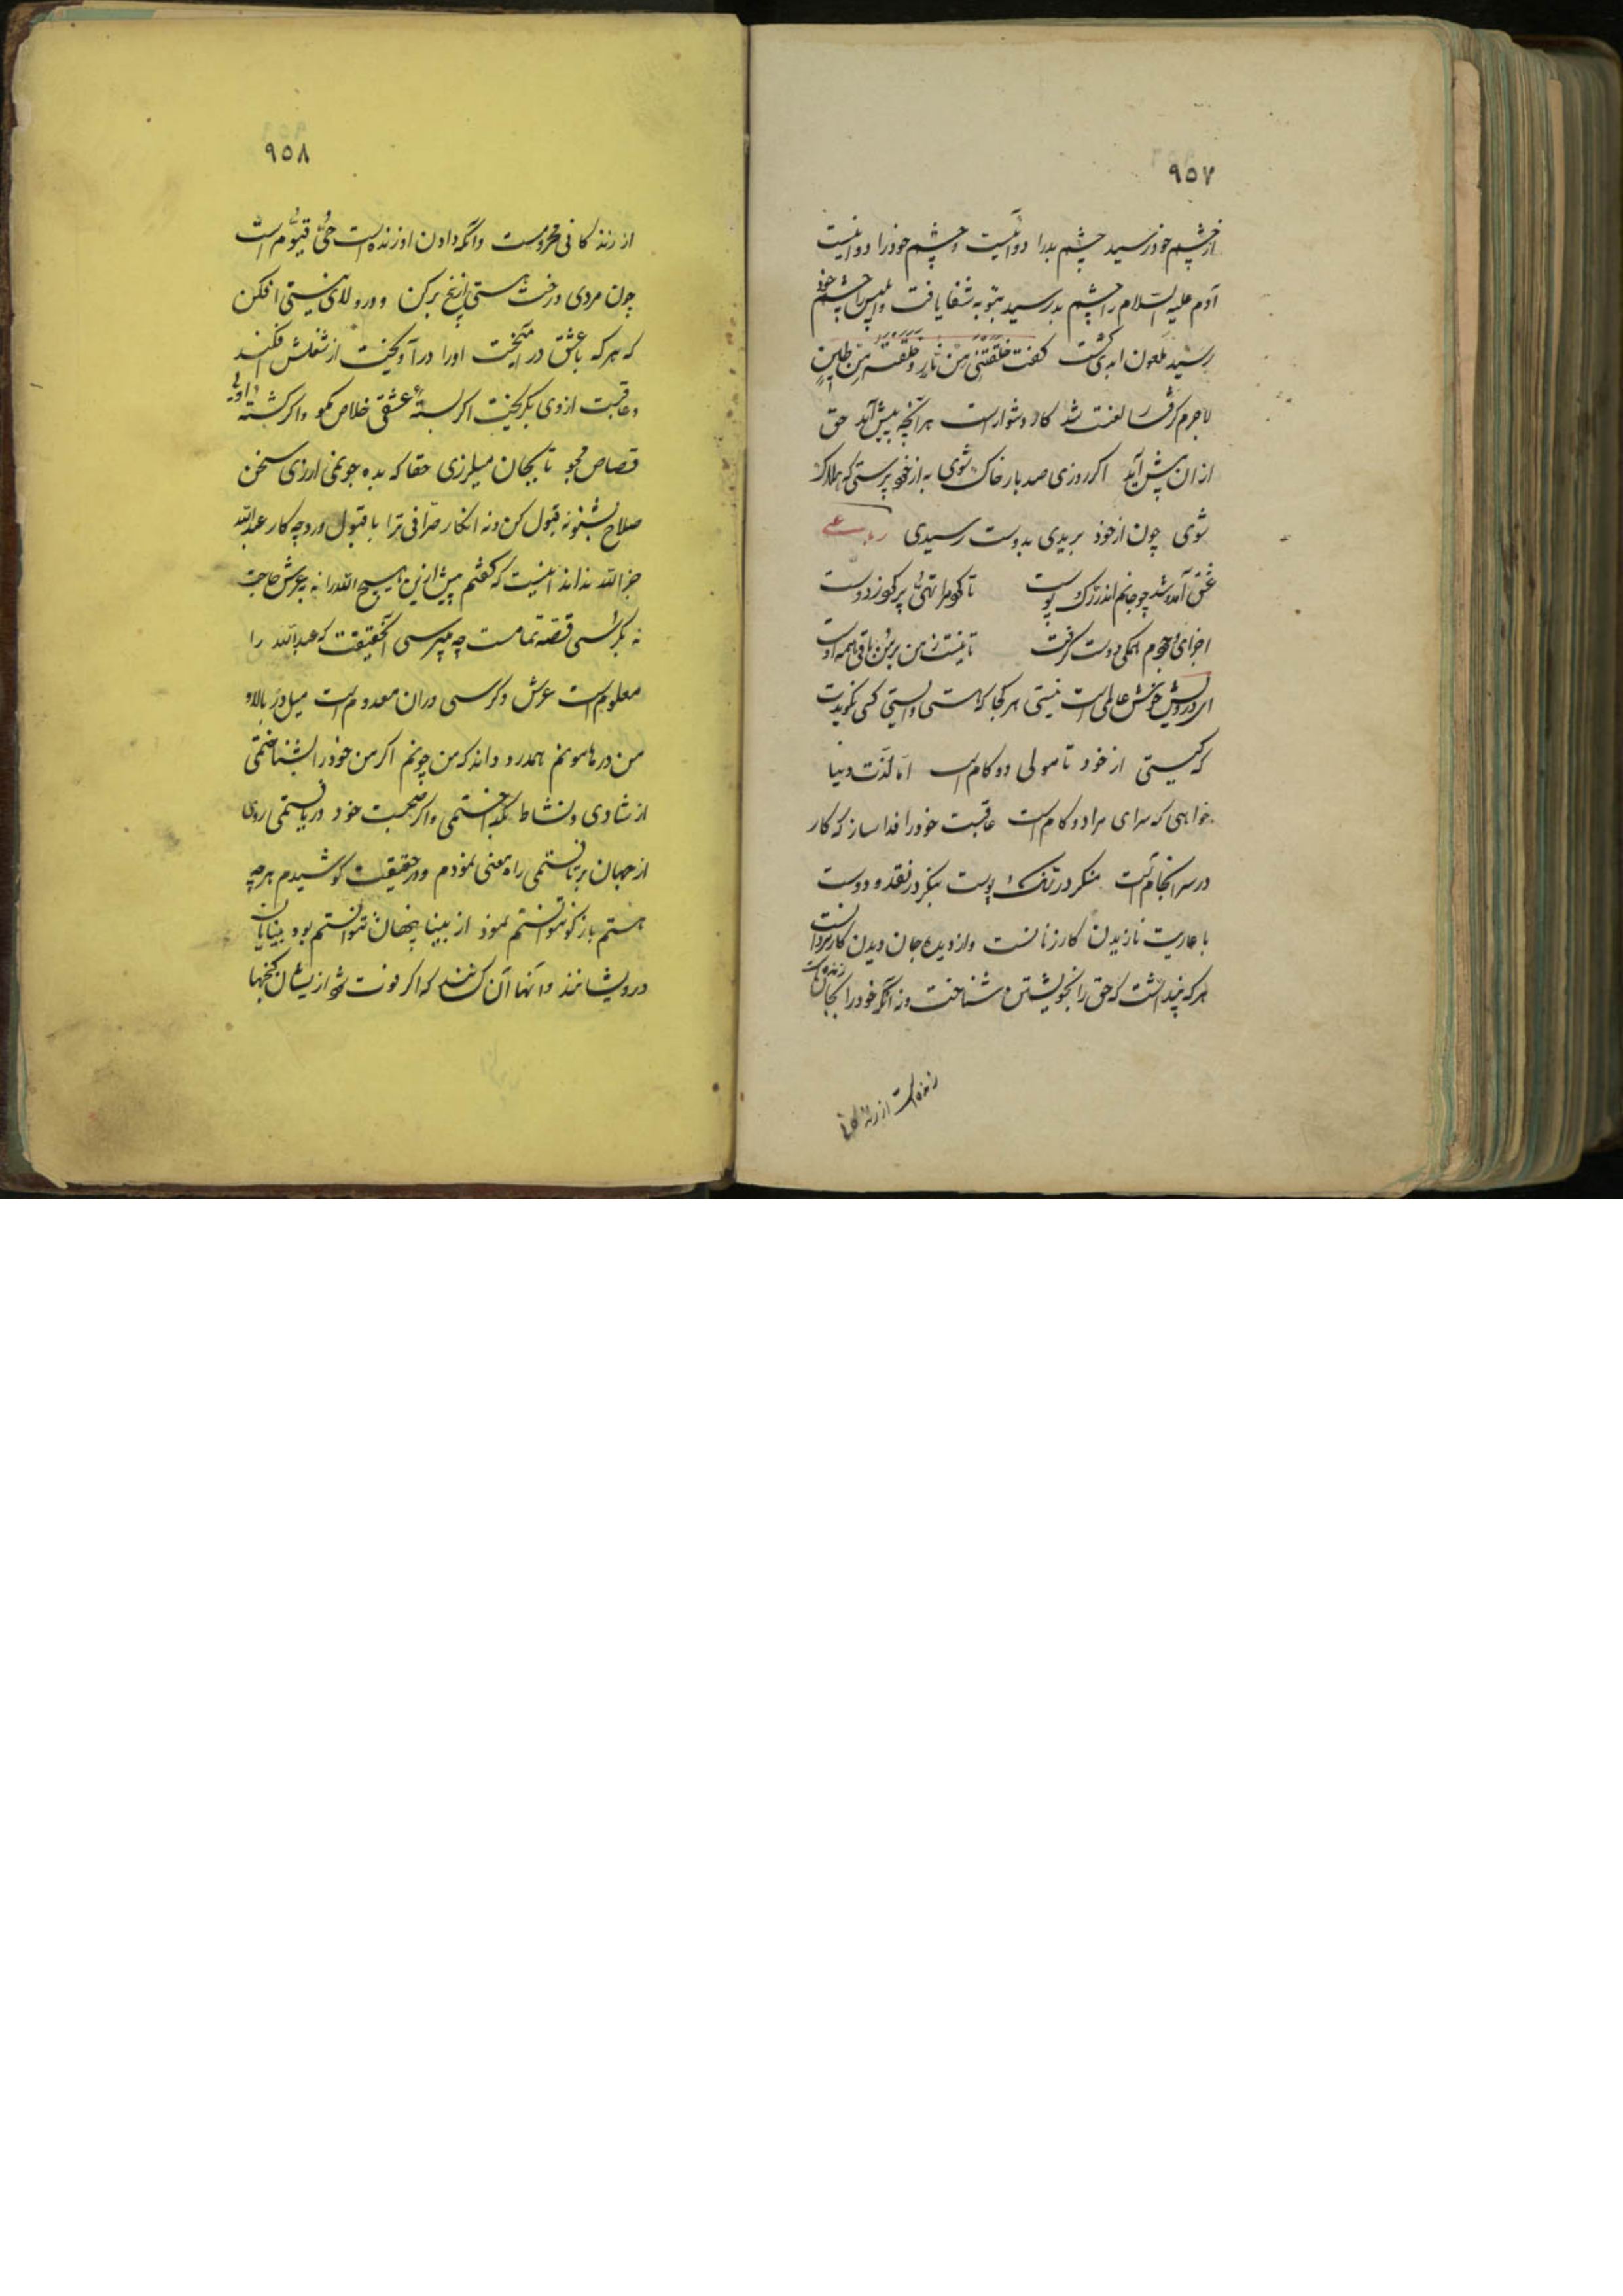 ۹۵۷
از چشم خود رسید چشم بد را دوا نیست و چشم خود را دوا نیست
آدم علیه السلام را چشم بد رسید بتوبه شفا یافت و ابلیس را چشم خود
رسید ملعون ابدی کشت کفت خَلَقْتَنی مِنْ نارٍ وَ خَلَقْتَهُ مِنْ طینٍ
لاجرم کرفتار لعنت شد کار دشوار است هر آنچه پیش آید حق
از ان پیش آید اکر روزی صد بار خاک شوی به از خود پرستی که هلاک
شوی چون از خود بریدی بدوست رسیدی رباعی
عشق آمد و شد چو جانم اندر رک و پوست
تا کرد مرا تهی و پر کرد ز دوست
اجزای وجودم همکی دوست کرفت
تا نیست ز من بر من باقی همه اوست
ای درویش خوش عالمی است نیستی هر کجا که هستی و ایستی کسی نکویدت
که کیستی از خود تا مولی دو کام است اما لذت دنیا
خواهی که سرای مراد و کام است عاقبت خود را فدا ساز که کار
در سرانجام است منکر در تنک پوست بنکر در نقد و دوست
با عاریت نازیدن کار زنانست و از دیده جان دیدن کار مردانست
هر که پنداشت که حق را بخویشتن شناخت و نه آنکه خود را بجان زنده داشت
زنده است از زندکانی
۹۵۸
از زندکانی محروست وانکه دادن او زنده است حیّ قیّوم است
چون مردی درخت هستی از بیخ برکن و در ولای نیستی افکن
که هر که با عشق در آمیخت او را در آویخت از شغلش افکند
و عاقبت از وی بکریخت اکر بستهٔ عشقی خلاص مجو و اکر کشتهٔ اویی
قصاص مجو تا بجان میلرزی حقا که بده جو نمی ارزی سخن
صلاح بشنو نه قبول کن و نه انکار صرافی ترا با قبول و رد چه کار عبدالله
جز الله نداند اینست که کفتم پیش ازین هیچ الله را نه بعرش حاجت
نه بکرسی قصه تمامست چه میپرسی آنحقیقت که عبدالله را
معلوم است عرش و کرسی در ان معدوم است میل در بالا و
من در هامونم همدرد داند که من چونم اکر من خود را بشناختمی
از شادی و نشاط بکداختمی و اکر صحبت خود دریافتمی روی
از جهان برتافتمی راه معنی نمودم و در حقیقت کوشیدم هر چه
هستم باز کو نتوانستم نمود از بینا پنهان نتوانستم بود بینایان
درویشانند و آنها آن کنند که اکر فوت شود از یشان کنجها